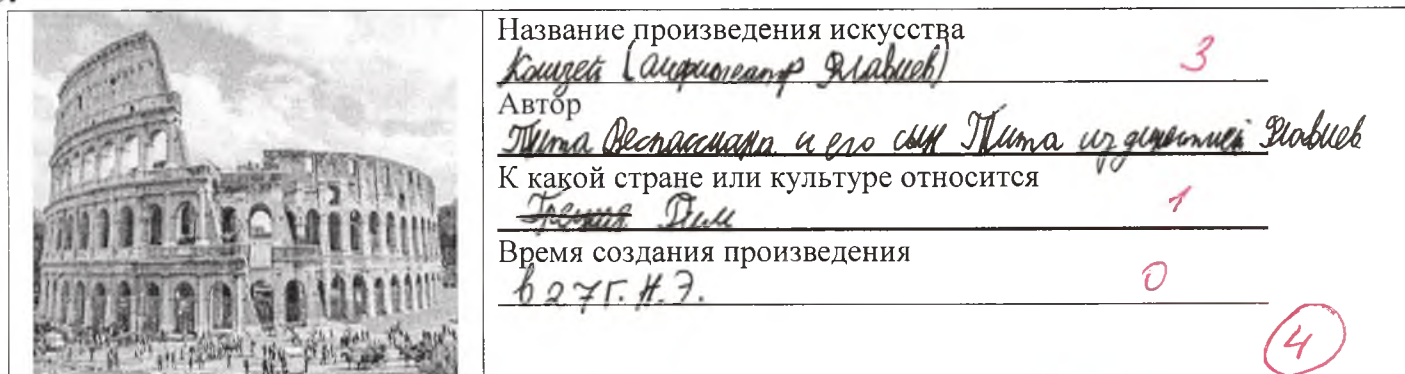 Название произведения искусства
Колизей (амфитеатр Флавиев) 3
Автор
Тита Веспассиана и его сын Тита из династией Флавиев
К какой стране или культуре относится
Греция Рим 1
Время создания произведения
в 27 г. н.э. 0
4